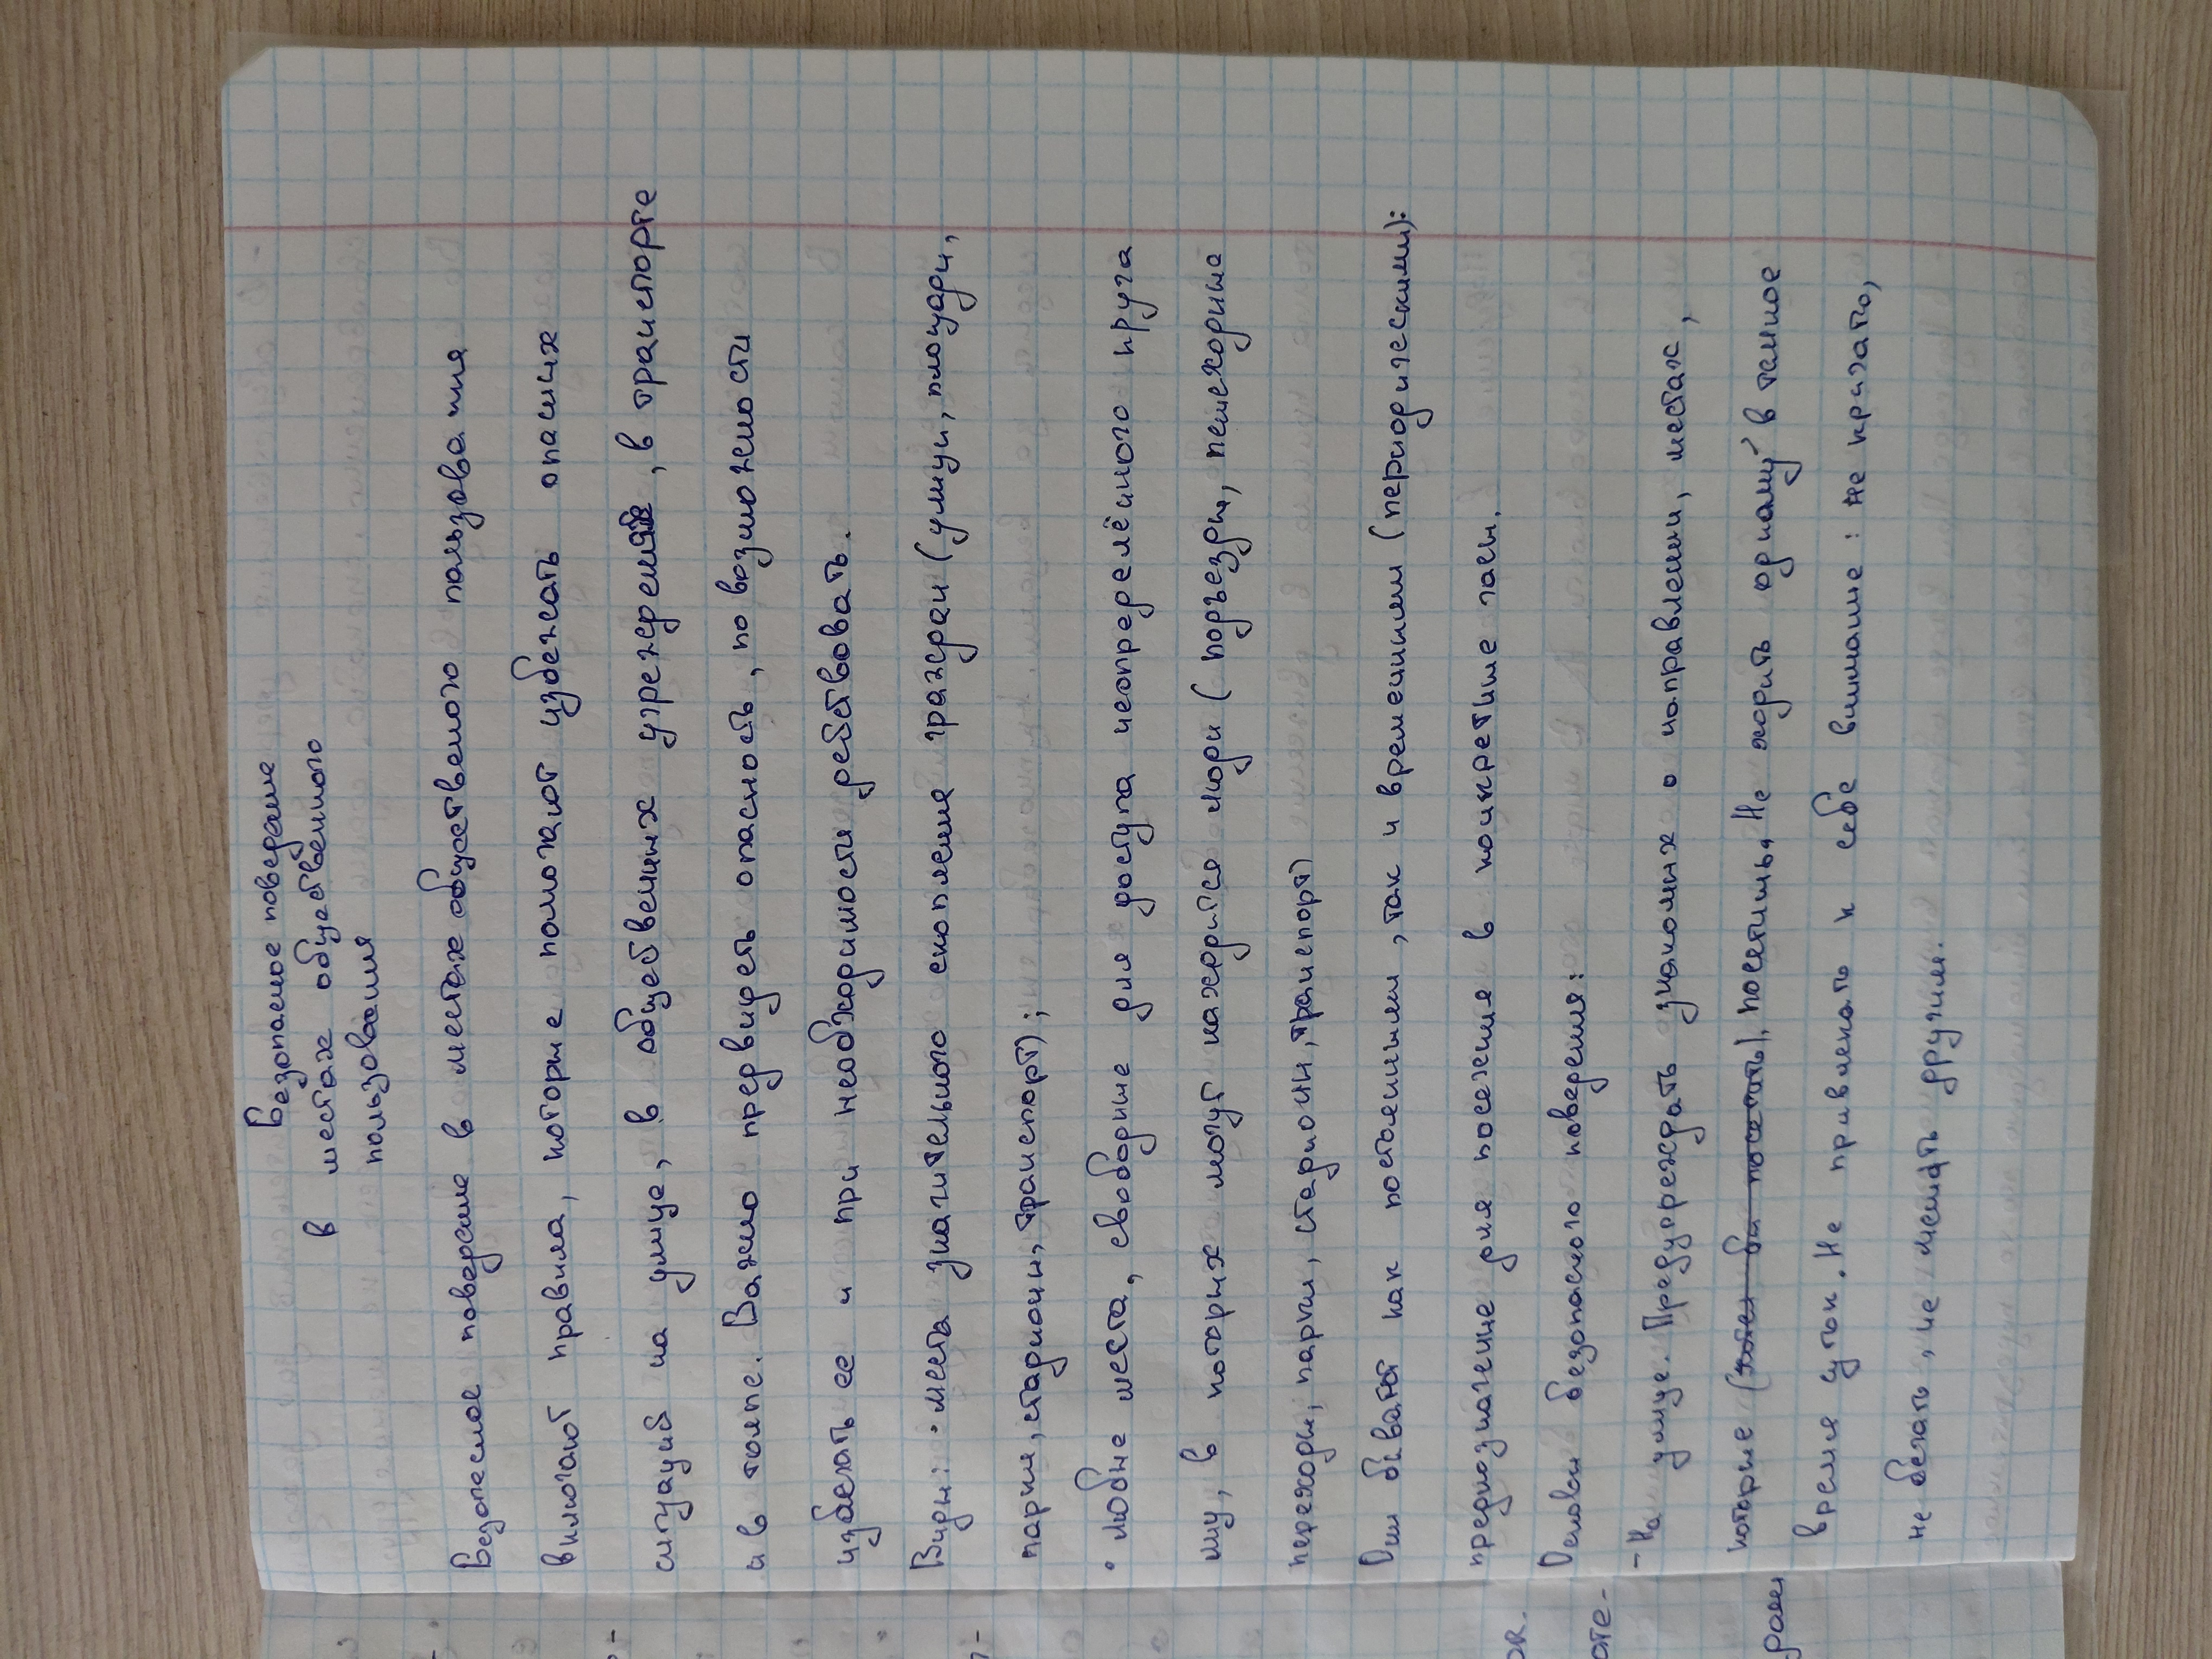 Безопасное поведение
в местах общественного
пользования
Безопасное поведение в местах общественого пользования
включают правила, которые помогают избежать опасных
ситуаций на улице, в общественных учреждениях, в транспорте
и в толпе. Важно предвидеть опасность, по возможности
избегать ее и при необходимости действовать.
Виды: · места значительного скопления граждан (улицы, площади,
парки, стадионы, транспорт);
· любые места, свободные для доступа неопределёного круга
лиц, в которых могут находится люди (подъезды, пешеходные
переходы, парки, стадионы, транспорт)
Они бывают как постоянными, так и временными (периодическими):
предназначение для посещения в конкретные часы.
Основы безопасного поведения:
- На улице. Предупреждать знакомых о направлении, местах,
которые (хотел бы посетить), посетишь. Не ходить одному в темное
время суток. Не привлекать к себе внимание: не кричать,
не бегать, не мешать другим.
ок.
оте-